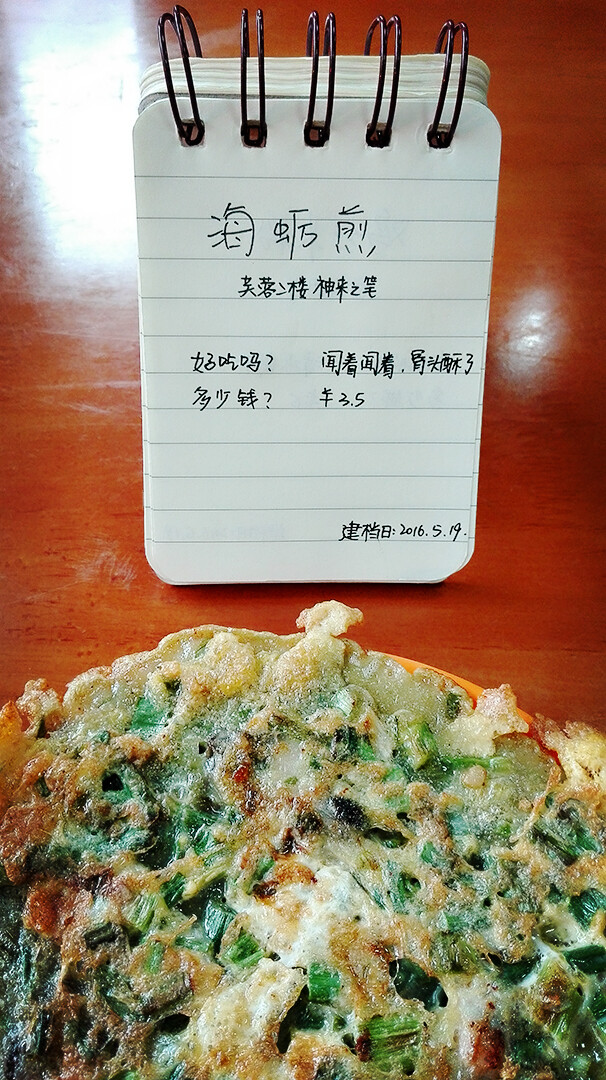 海蛎煎
芙蓉二楼神来之笔
好吃吗？ 闻着闻着，骨头酥了
多少钱？ ¥3.5
建档日:2016.5.19.